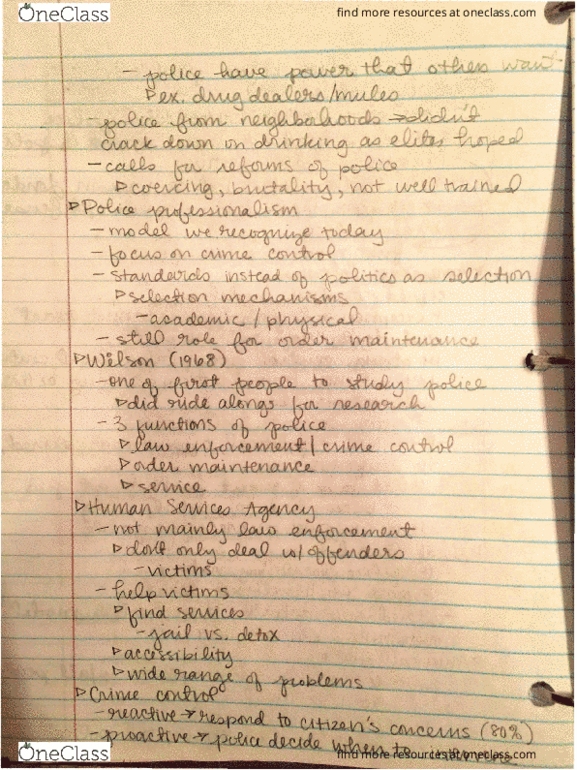 OneClass
find more resources at oneclass.com
- police have power that others want
▷ ex. drug dealers/mules
- police from neighborhoods → didn't
crack down on drinking as elites hoped
- calls for reforms of police
▷ coercing, brutality, not well trained
▷ Police professionalism
- model we recognize today
- focus on crime control
- standards instead of politics as selection
▷ selection mechanisms
- academic / physical
- still role for order maintenance
▷ Wilson (1968)
- one of first people to study police
▷ did ride alongs for research
- 3 functions of police
▷ law enforcement / crime control
▷ order maintenance
▷ service
▷ Human Services Agency
- not mainly law enforcement
▷ don't only deal w/ offenders
- victims
- help victims
▷ find services
- jail vs. detox
▷ accessibility
▷ wide range of problems
▷ Crime control
- reactive → respond to citizen's concerns (80%)
- proactive → police decide when to
OneClass
find more resources at oneclass.com